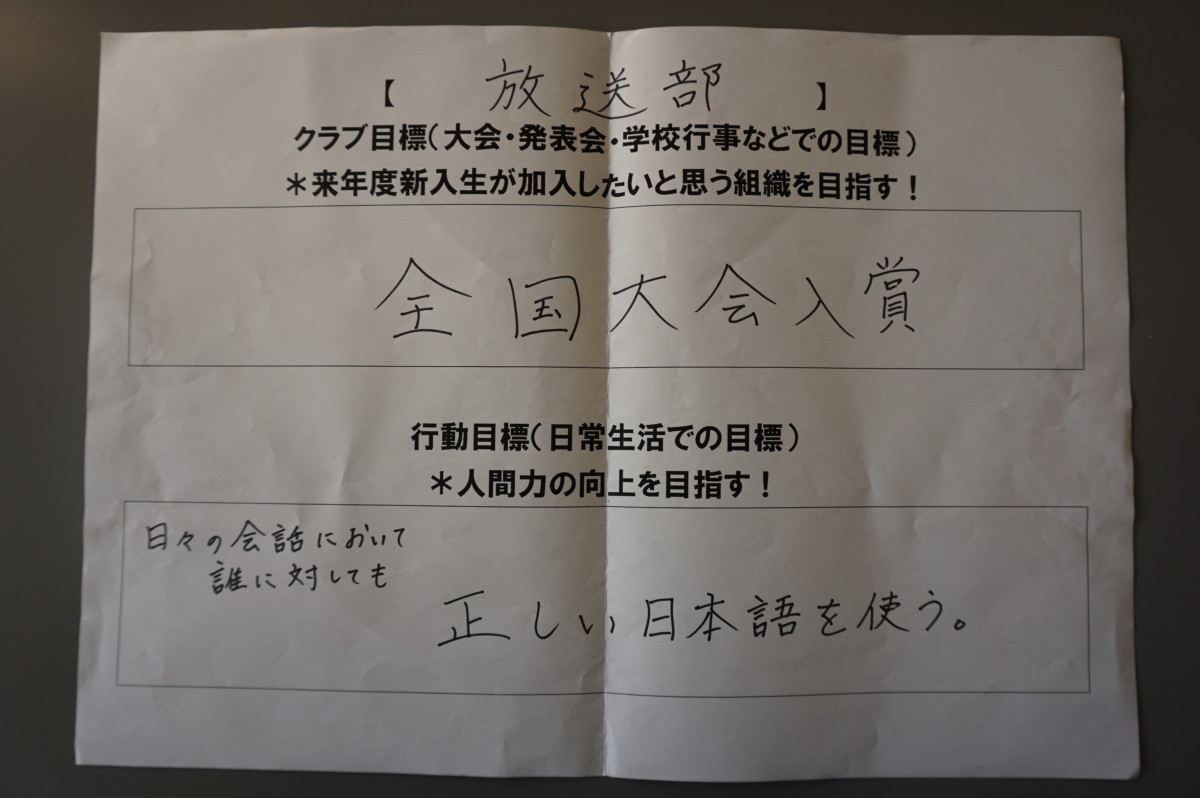 【 放送部 】
クラブ目標(大会・発表会・学校行事などでの目標)
＊来年度新入生が加入したいと思う組織を目指す！
全国大会入賞
行動目標(日常生活での目標)
＊人間力の向上を目指す！
日々の会話において
誰に対しても
正しい日本語を使う。